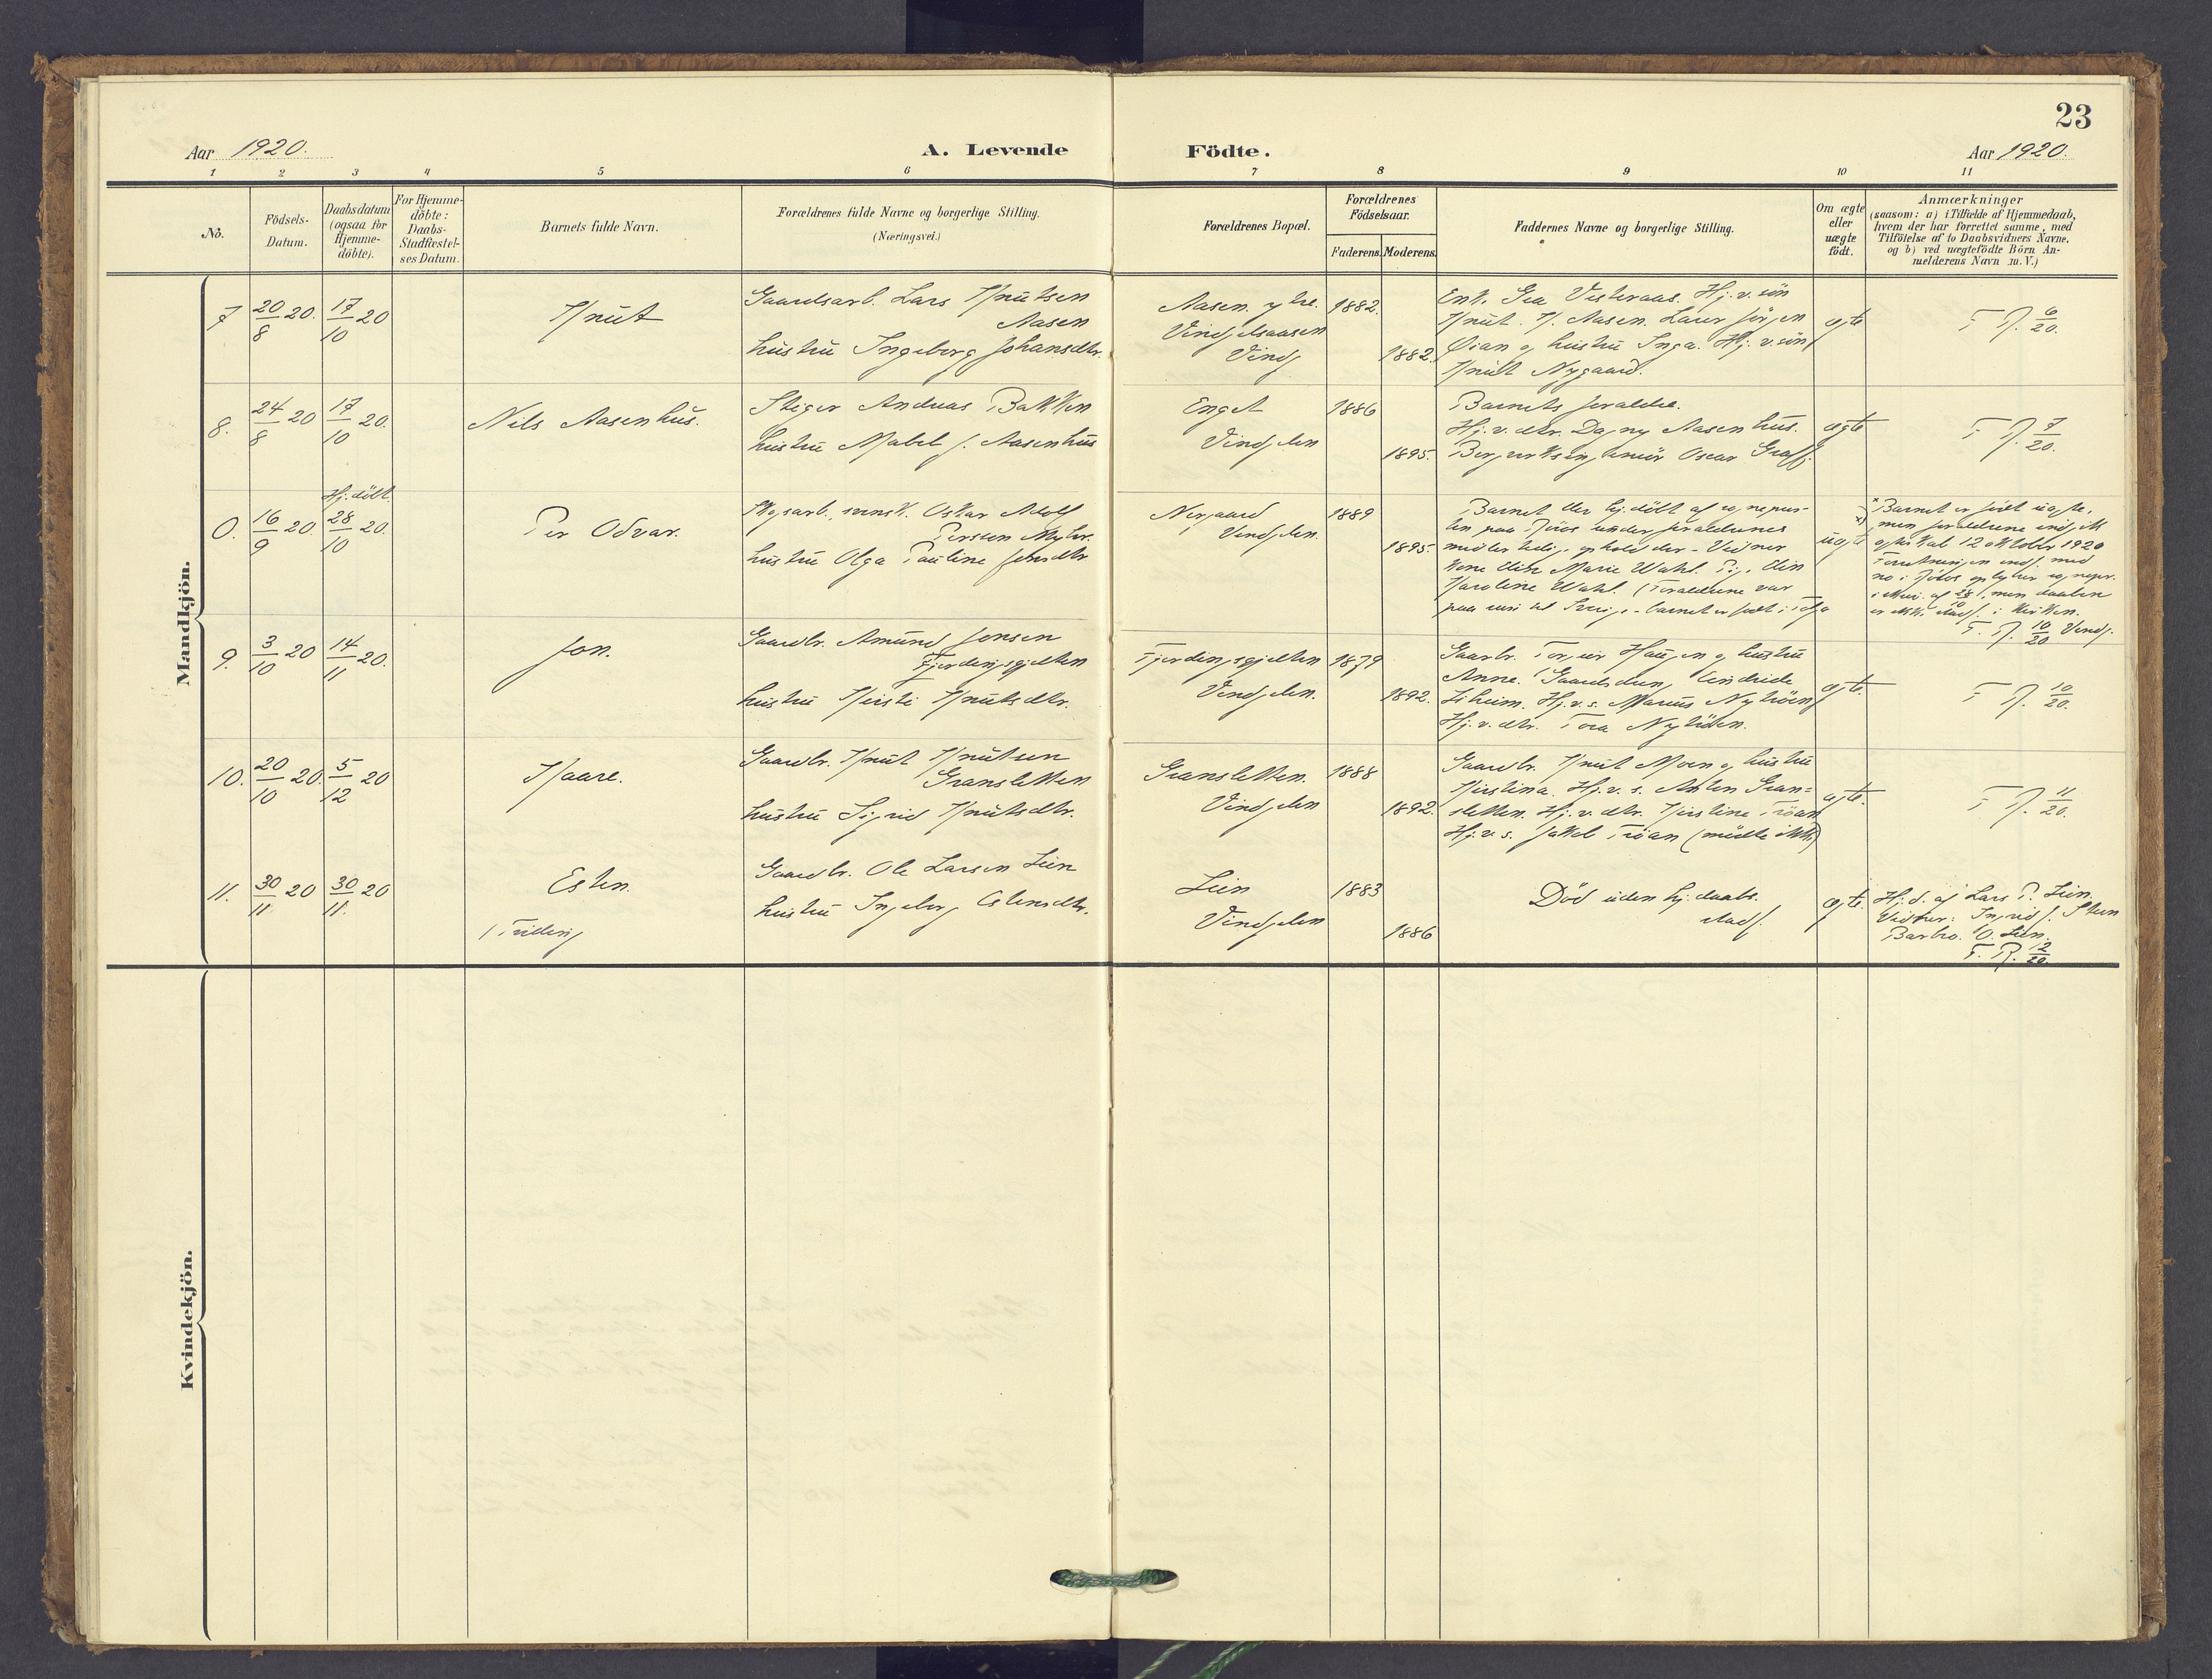 23
Aar 1920.
A. Levende Födte.
Aar 1920.
1 2 3 4 5 6 7 8 9 10 11
No.
Födsels-
Datum.
Daabsdatum
(ogsaa for
Hjemme-
döbte).
For Hjemme-
döbte:
Daabs-
Stadfæstel-
ses Datum.
Barnets fulde Navn.
Forældrenes fulde Navne og borgerlige Stilling.
(Næringsvei.)
Forældrenes Bopæl.
Forældrenes
Födselsaar.
Faderens. Moderens.
Faddernes Navne og borgerlige Stilling.
Om ægte
eller
uægte
födt.
Anmærkninger
(saasom: a) i Tilfælde af Hjemmedaab,
hvem der har forrettet samme, med
Tilföielse af to Daabsvidners Navne,
og b) ved uægtefödte Börn An-
melderens Navn m. V.)
Mandkjön.
7 20/8 20. 17/10 20
Knut
Gaardsarb. Lars Knutsen
Aasen
hustru Ingeborg Johansdtr.
Aasen ytre
Vingelsaasen
Ving
1882.
1882.
Enk. Gea Vesteraas. Hj. v. sön
Knut K. Aasen. Lærer Jörgen
Öian og hustru Inga. Hj. v. sön
Knut Nygaard.
ægte
F. R. 6/20.
8. 24/8 20 17/10 20.
Nils Aasenhus.
Stiger Andreas Bakken
hustru Mabel f. Aasenhus
Enget
Vingelen
1886
1895.
Barnets forældre.
Hj. v. dtr. Dagny Aasenhus.
Bergverksingeniör Oscar Graff.
ægte
F. R. 7/20.
Hj. döbt
0. 16/9 20 28/10 20.
Per Odvar.
Skogsarb., svensk. Oskar Adolf
Persson Myhr.
hustru Olga Pauline Jensdtr
Nergaard
Vingelen.
1889
1895.
Barnet blev hj. döbt af sognepres-
ten paa Röros under forældrenes
midlertidige ophold der - Vidner
Kone Elin Marie Wahl. Pige Elin
Karoline Wahl. (Forældrene var
paa reise til Sverige - barnet er födt i Tolga
uægte
x) Barnet er födt uægte,
men forældrene indgik
egteskab 12 oktober 1920
i Röros sognepr.
er ikke stadf. i kirken.
F. R. 10/20 Ving.
9. 3/10 20 14/11 20.
Jon.
Gaardbr. Amund Jonsen
Fjerdingsgjelten
hustru Kirsti Knutsdtr.
Fjerdingsgjelten
Vingelen.
1879
1892.
Gaardbr. Torgeir Haugen og hustru
Anne. Gaardsdreng Endride
Hj. v. s. Marius Nytröen
Hj. v. dtr. Tora Nytröen.
ægte.
F. R. 10/20.
10. 20/10 20. 5/12 20
Kaare.
Gaardbr. Knut Knutsen
Gransletten
hustru Sigrid Knutsdtr.
Gransletten.
Vingelen
1888
1892.
Gaardbr. Knut Moen og hustru
Kirstina. Hj. v. s. Esten Gran-
sletten. Hj. v. dtr. Kirstine Tröan
Hj. v. s. Jakob Tröan (mödte ikke)
ægte.
F. R. 11/20.
11. 30/11 20 30/11 20
Esten.
(Tvilling
Gaardbr. Ole Larsen Lien
hustru Ingeborg Estensdtr.
Lien
Vingelen
1883
1886
Död uden hj. daabs.
stadf.
ægte.
Hj. d. af Lars P. Lien.
Vidner: Ingrid J. Steen
Barbro O. Lien.
F. R. 12/20.
Kvindekjön.